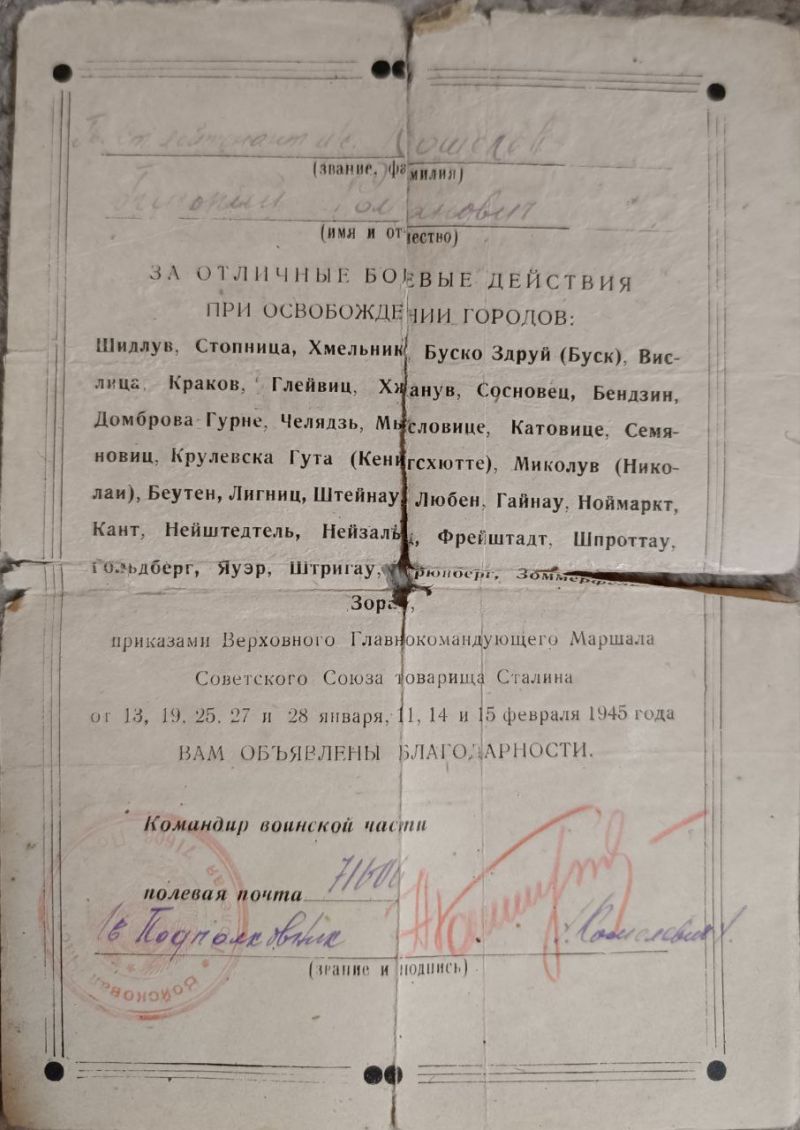 (звание, фамилия)
(имя и отчество)
ЗА ОТЛИЧНЫЕ БОЕВЫЕ ДЕЙСТВИЯ
ПРИ ОСВОБОЖДЕНИИ ГОРОДОВ:
Шидлув, Стопница, Хмельник, Буско Здруй (Буск), Вис-
лица, Краков, Глейвиц, Хжанув, Сосновец, Бендзин,
Домброва Гурне, Челядзь, Мысловице, Катовице, Семя-
новиц, Крулевска Гута (Кенигсхютте), Миколув (Нико-
лаи), Беутен, Лигниц, Штейнау, Любен, Гайнау, Ноймаркт,
Кант, Нейштедтель, Нейзальц, Фрейштадт, Шпроттау,
Гольдберг, Яуэр, Штригау, Грюнберг, Зоммерфельд,
Зорау,
приказами Верховного Главнокомандующего Маршала
Советского Союза товарища Сталина
от 13, 19, 25, 27 и 28 января, 11, 14 и 15 февраля 1945 года
ВАМ ОБЪЯВЛЕНЫ БЛАГОДАРНОСТИ.
Командир воинской части
полевая почта 71606
Гв Подполковник
(звание и подпись)